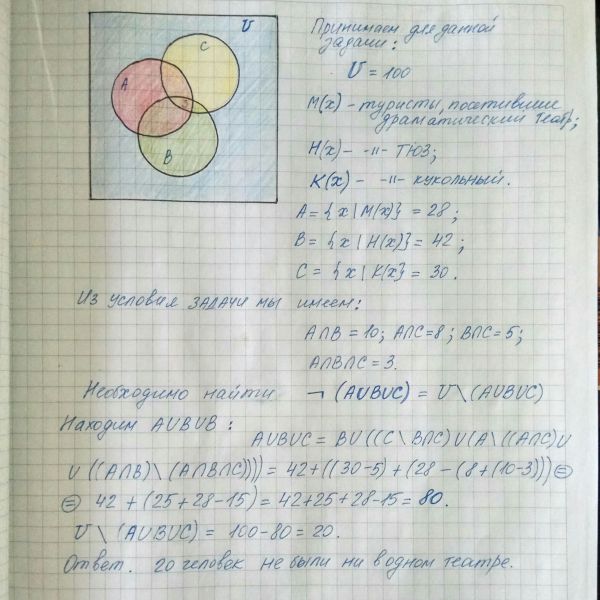 U
C
A
3
B
Принимаем для данной
задачи:
U = 100
M(x) - туристы, посетившие
драматический театр;
H(x) - -"- ТЮЗ;
K(x) - -"- кукольный.
A = {x | M(x)} = 28;
B = {x | H(x)} = 42;
C = {x | K(x)} = 30.
Из условия задачи мы имеем:
A∩B = 10; A∩C = 8; B∩C = 5;
A∩B∩C = 3.
Необходимо найти ¬ (A∪B∪C) = U \ (A∪B∪C)
Находим A∪B∪B:
A∪B∪C = B∪((C \ B∩C)∪(A \ ((A∩C)∪
∪ ((A∩B) \ (A∩B∩C)))) = 42 + ((30-5) + (28 - (8 + (10-3))) =
= 42 + (25 + 28 - 15) = 42 + 25 + 28 - 15 = 80.
U \ (A∪B∪C) = 100 - 80 = 20.
Ответ. 20 человек не были ни в одном театре.